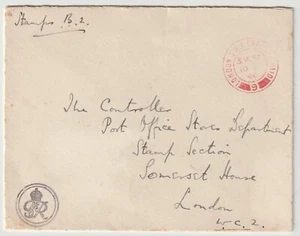 Stamps B.2.
LONDON
9
The Controller
Post Office Stores Department
Stamp Section
Somerset House
London
W.C.2.